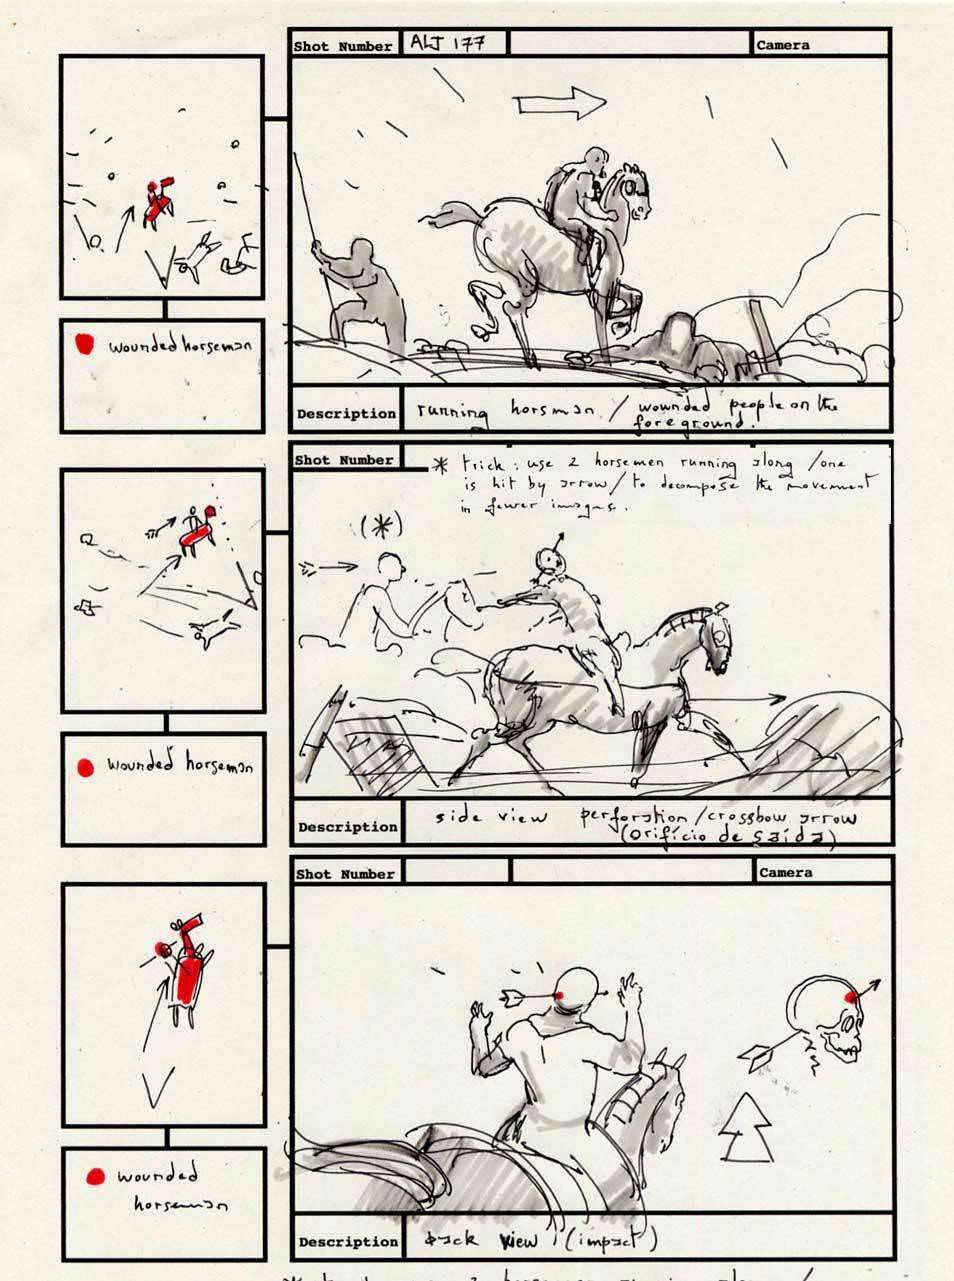 Shot Number ALJ 177 Camera
wounded horseman
Description running horsman / wounded people on the
foreground.
Shot Number * trick : use 2 horsemen running along / one
is hit by arrow / to decompose the movement
in fewer images.
(*)
wounded horseman
Description side view perforation / crossbow arrow
(orifício de saída)
Shot Number Camera
wounded
horseman
Description back view (impact)